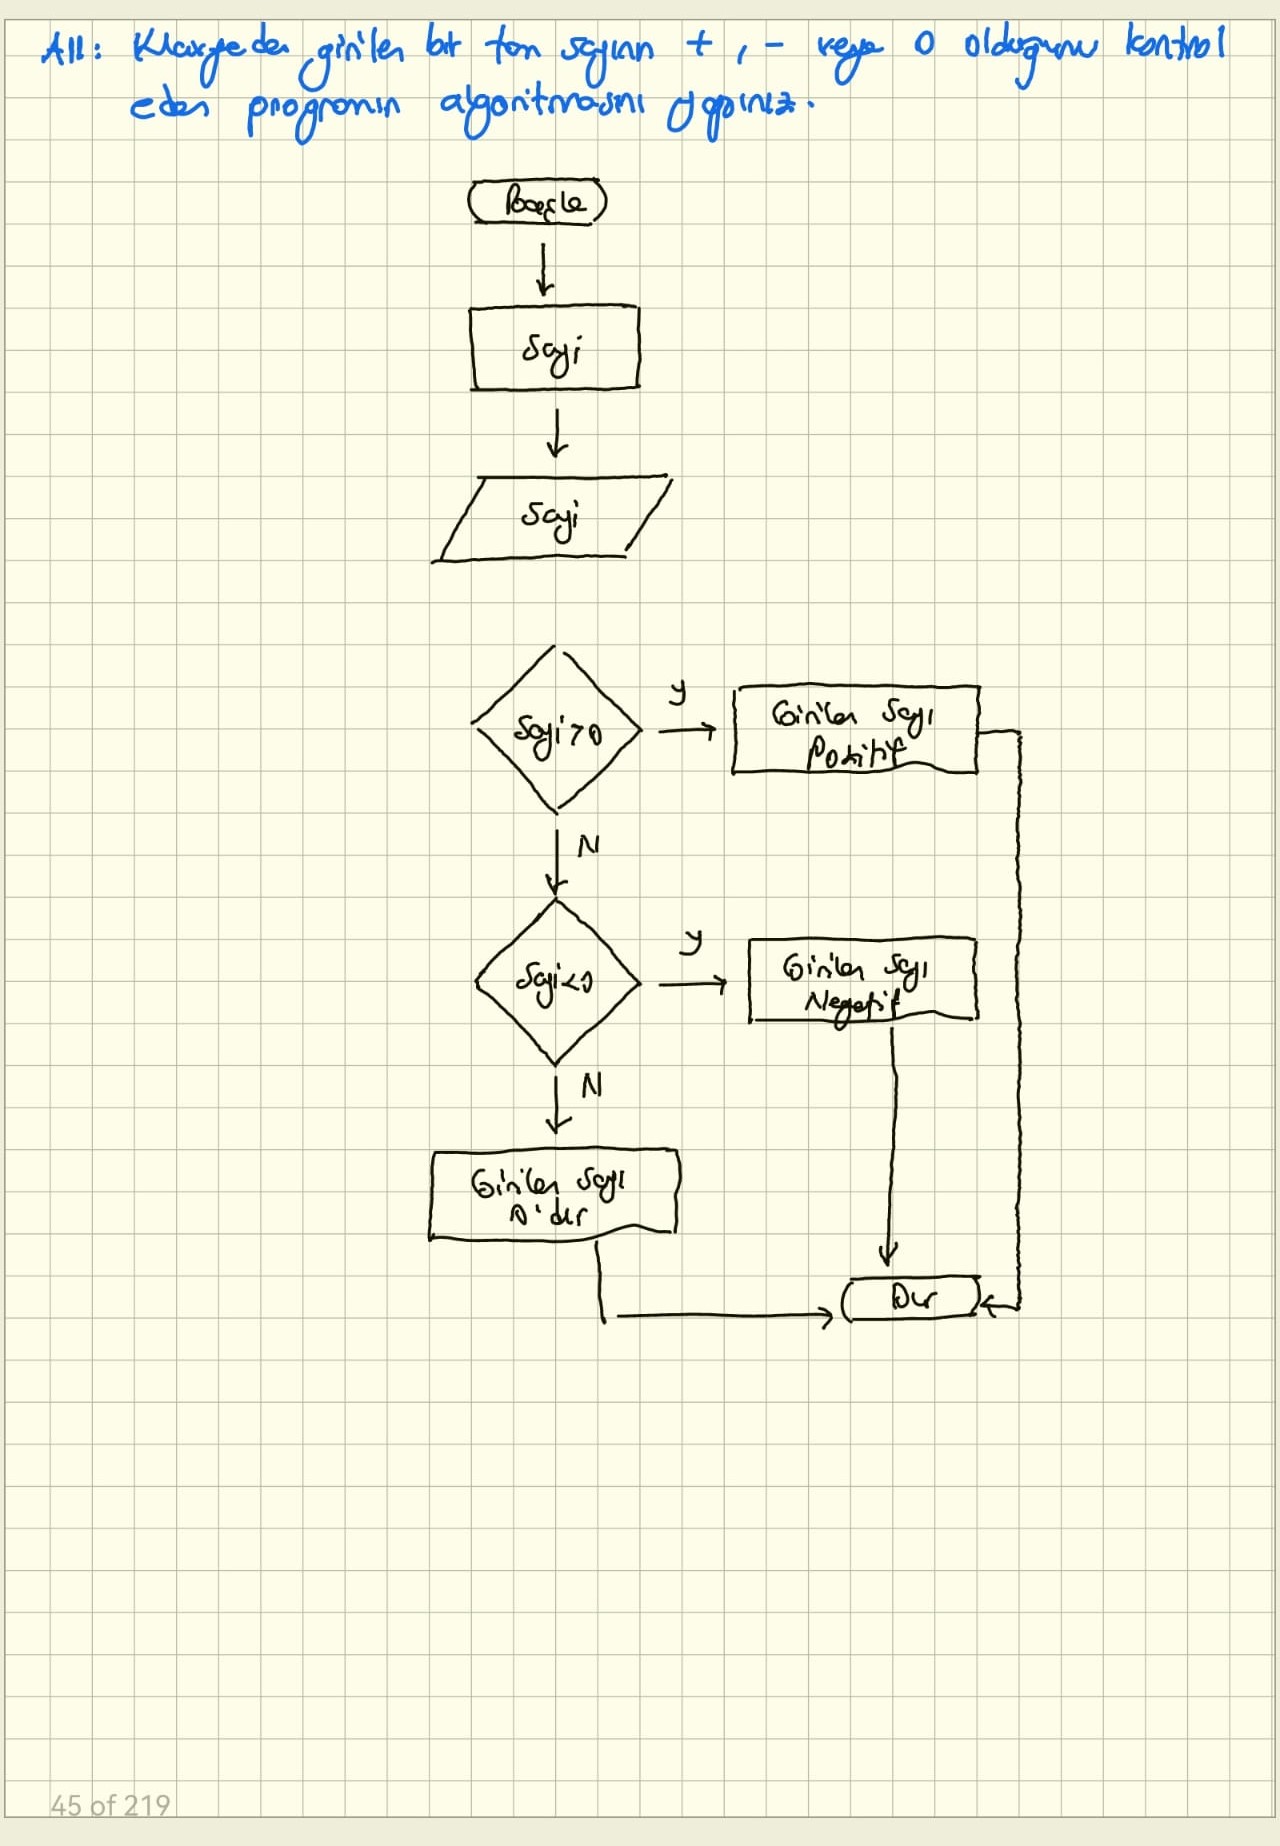 A11: Klavyeden girilen bir tam sayının +, - veya 0 olduğunu kontrol
eden programın algoritmasını yapınız.
Başla
Sayi
Sayi
Sayi>0
Y
Girilen Sayı
Pozitif
N
Sayi<0
Y
Girilen Sayı
Negatif
N
Girilen Sayı
0'dır
Dur
45 of 219